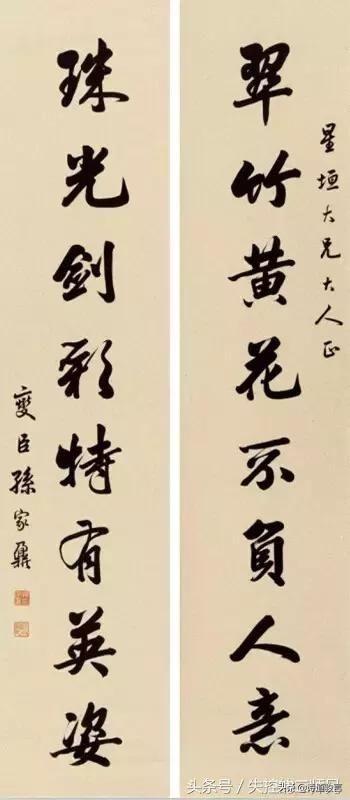 星垣大兄大人正
翠竹黄花不負人意
珠光劍彩特有英姿
燮臣孫家鼐
头条号/失控
头条